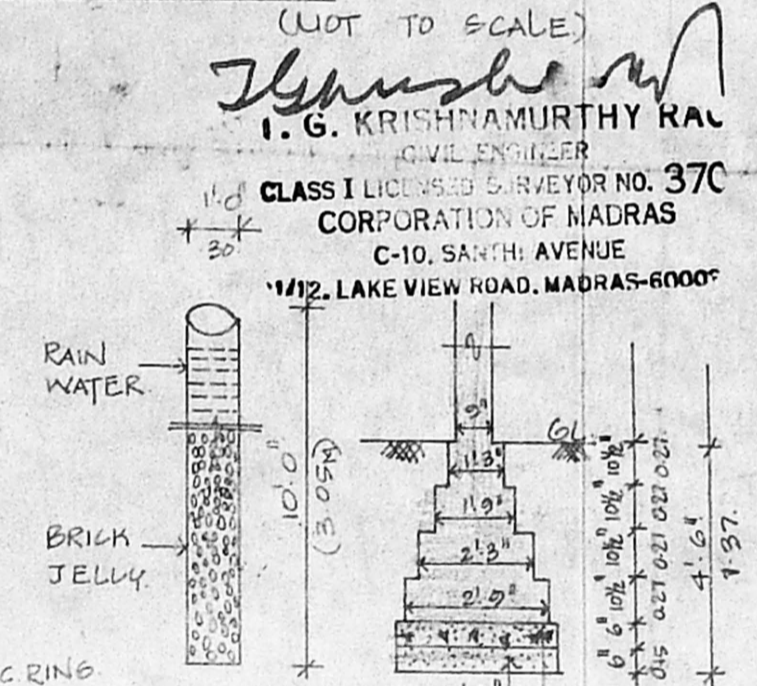 (NOT TO SCALE)
I. G. KRISHNAMURTHY RAO
CIVIL ENGINEER
CLASS I LICENSED SURVEYOR NO. 370
CORPORATION OF MADRAS
C-10, SANTHI AVENUE
11/12, LAKE VIEW ROAD, MADRAS-6000
1'.0"
30
RAIN
WATER
BRICK
JELLY
10'.0"
(3.05M)
9"
GL
1'.3"
1'.9"
2'.3"
2'.9"
10½" 10½" 10½" 10½" 9" 9"
0.27 0.27 0.27 0.27 0.15
4'.6"
1.37
C. RING